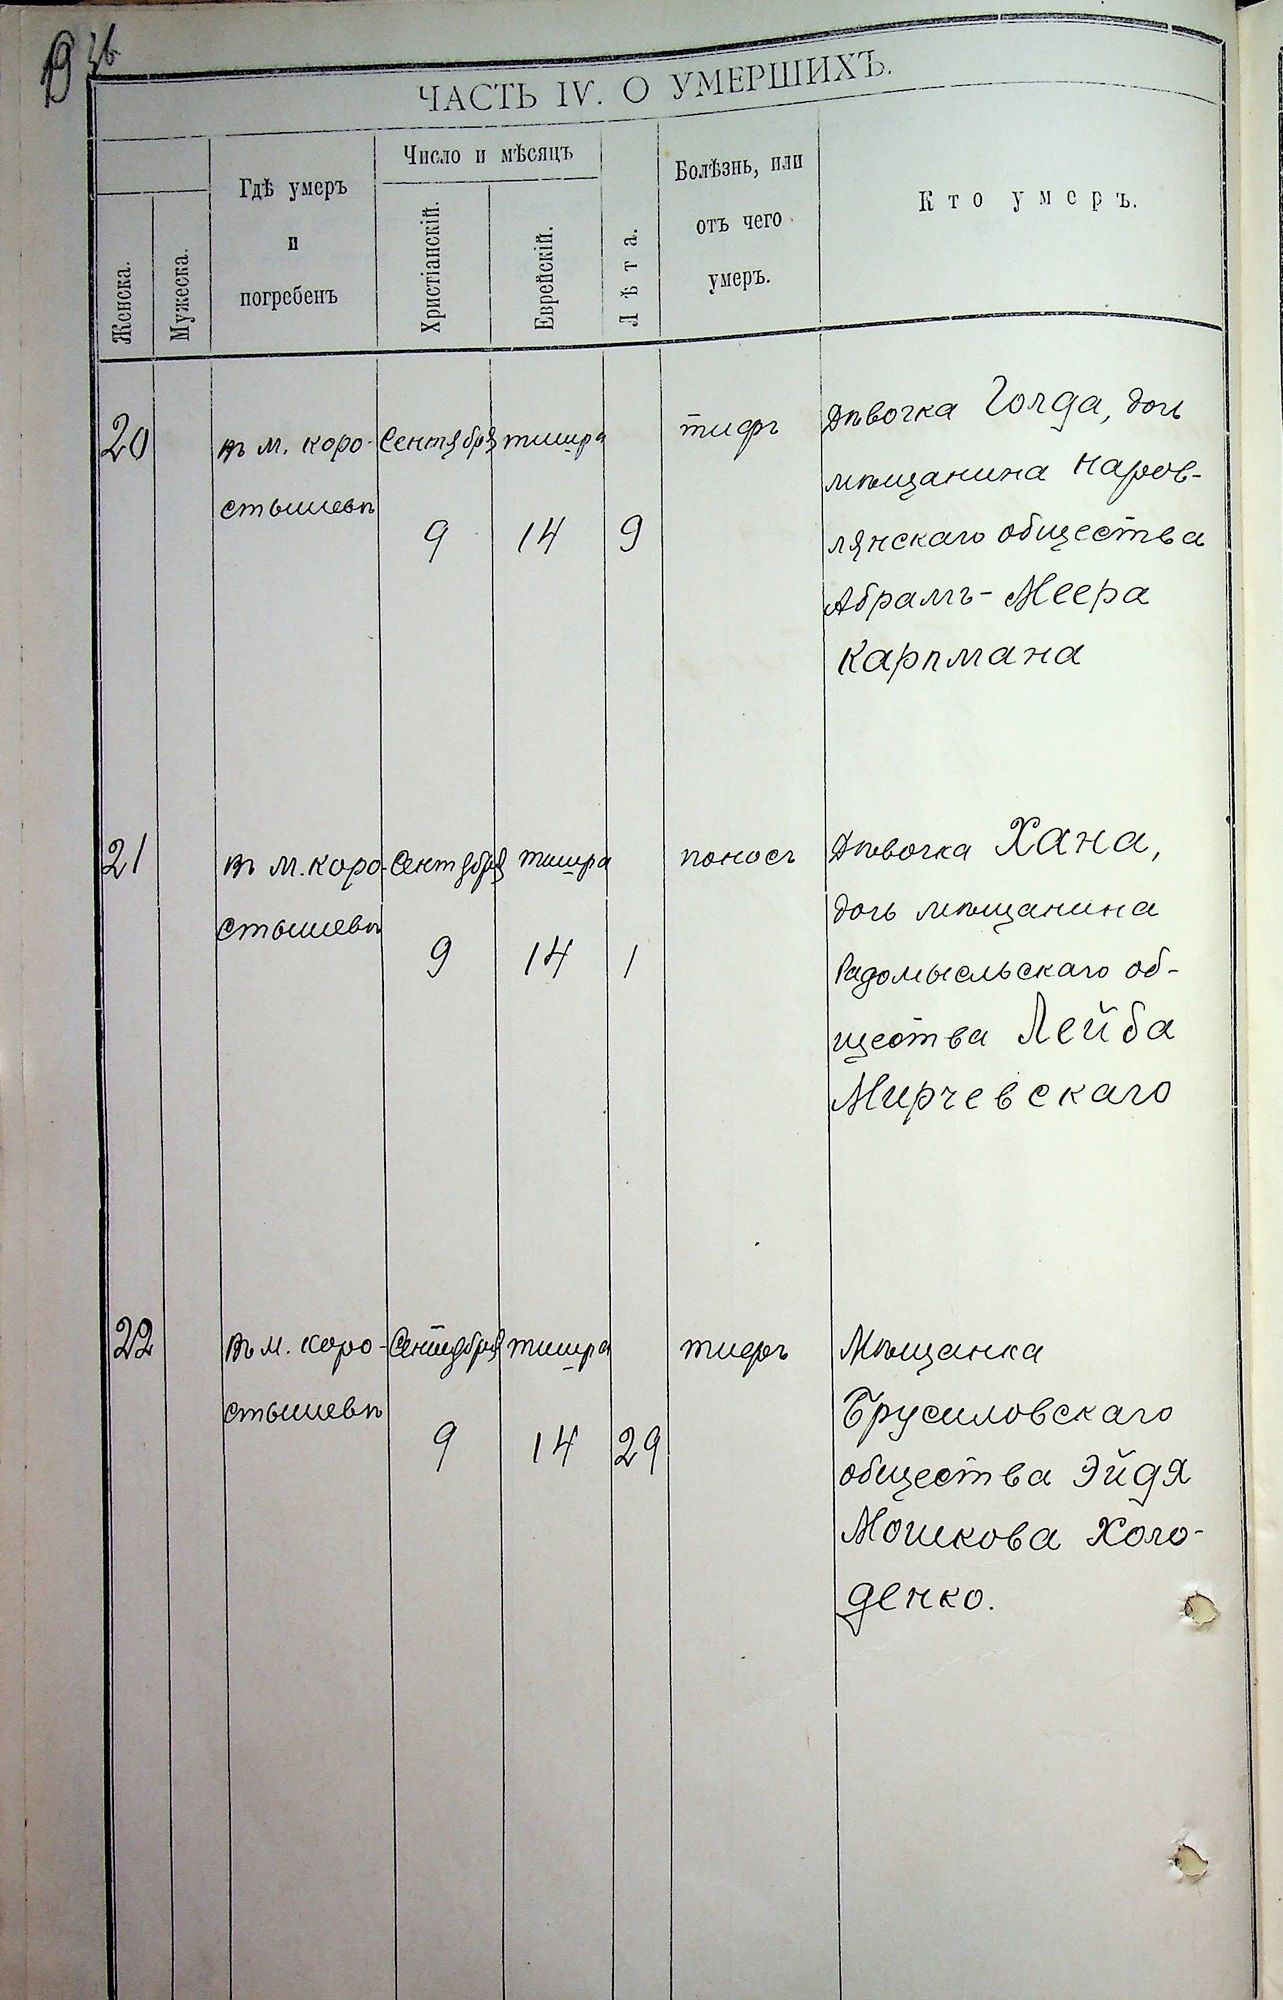 19 зв
ЧАСТЬ IV. О УМЕРШИХЪ.
Женска.
Мужеска.
Гдѣ умеръ
и
погребенъ
Число и мѣсяцъ
Христіанскій.
Еврейскій.
Лѣта.
Болѣзнь, или
отъ чего
умеръ.
Кто умеръ.
20
въ м. коро-
стышевѣ
Сентября
9
тишра
14
9
тифъ
Дѣвочка Голда, дочь
мѣщанина Наров-
лянскаго общества
Абрамъ-Меера
Карпмана
21
въ м. коро-
стышевѣ
Сентября
9
тишра
14
1
поносъ
Дѣвочка Хана,
дочь мѣщанина
Радомысльскаго об-
щества Лейба
Мирчевскаго
22
въ м. коро-
стышевѣ
Сентября
9
тишра
14
29
тифъ
Мѣщанка
Брусиловскаго
общества Эйдя
Мошкова Холо-
денко.